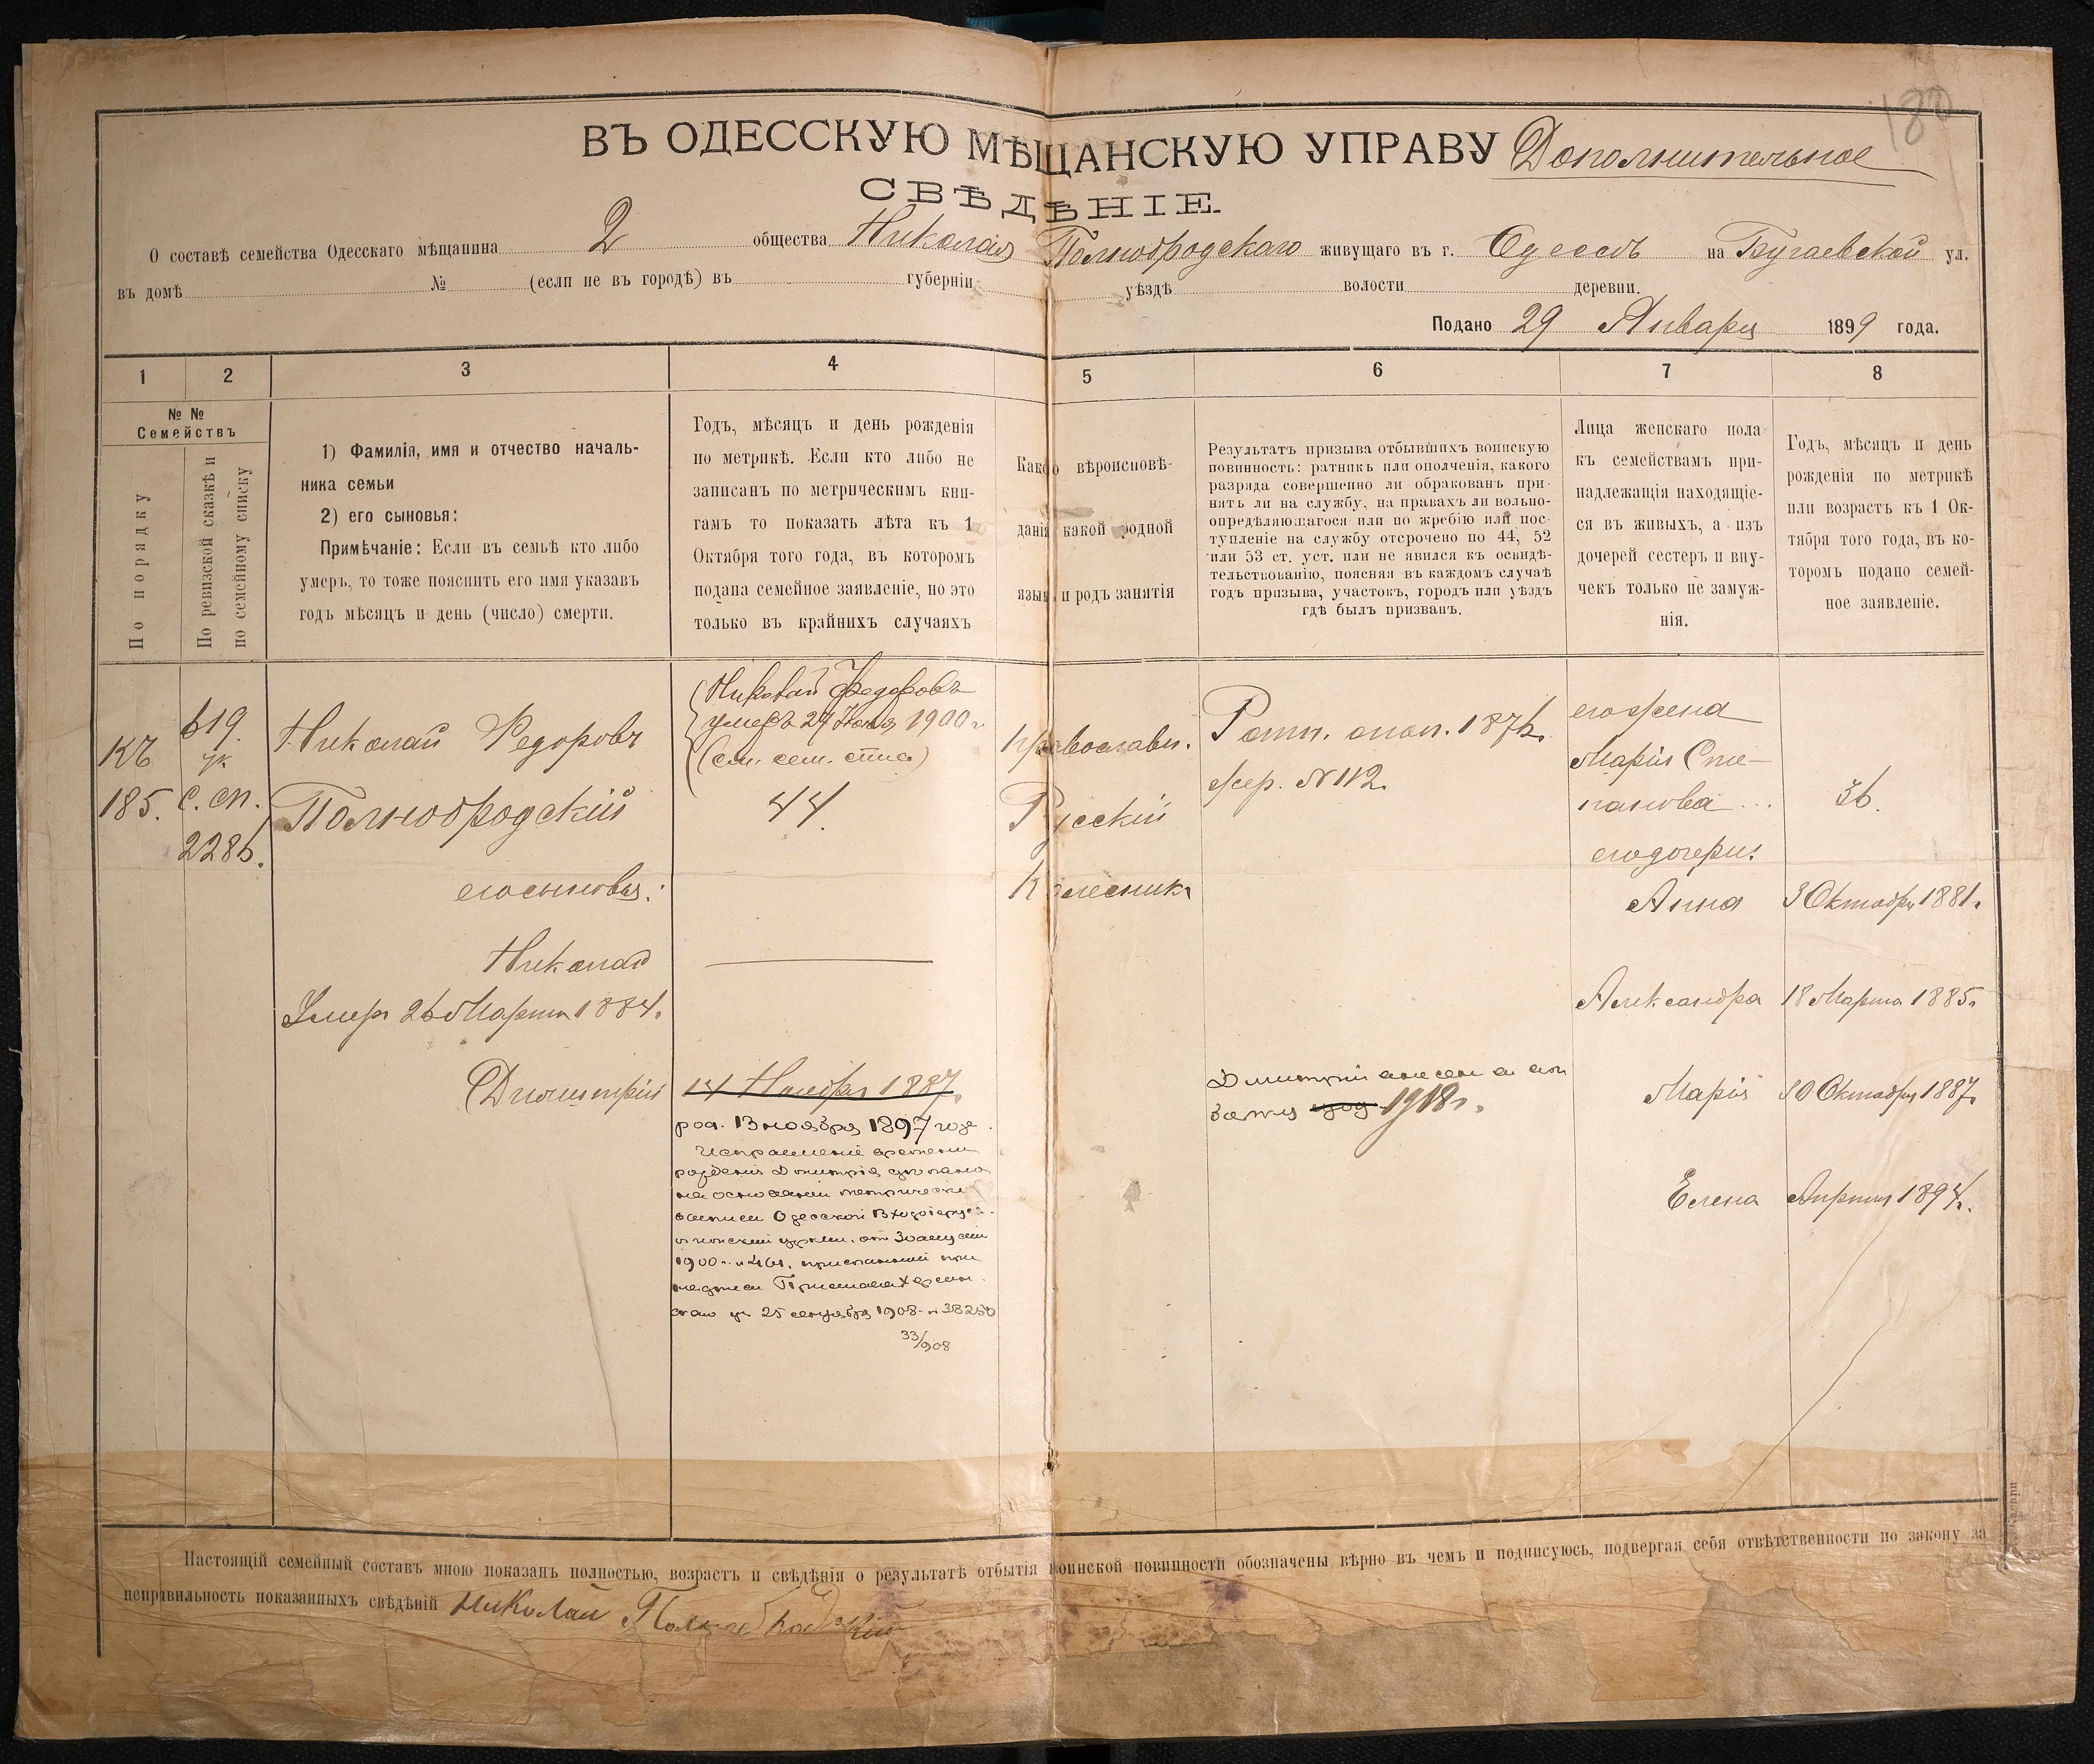 180
ВЪ ОДЕССКУЮ МѢЩАНСКУЮ УПРАВУ Дополнительное
СВѢДѢНІЕ.
О составѣ семейства Одесскаго мѣщанина 2 общества Николая Полнобродскаго живущаго въ г. Одессѣ на Бугаевской ул.
въ домѣ № (если не въ городѣ) въ губерніи уѣздѣ волости деревни.
Подано 29 Января 1899 года.
1 2 3 4 5 6 7 8
№ №
Семействъ
По порядку
По ревизской сказкѣ и
по семейному списку
1) Фамилія, имя и отчество началь-
ника семьи
2) его сыновья:
Примѣчаніе: Если въ семьѣ кто либо
умеръ, то тоже пояснить его имя указавъ
годъ мѣсяцъ и день (число) смерти.
Годъ, мѣсяцъ и день рожденія
по метрикѣ. Если кто либо не
записанъ по метрическимъ кни-
гамъ то показать лѣта къ 1
Октября того года, въ которомъ
подана семейное заявленіе, но это
только въ крайнихъ случаяхъ
Какого вѣроисповѣ-
данія какой родной
языкъ и родъ занятія
Результатъ призыва отбывшихъ воинскую
повинность: ратникъ или ополченія, какого
разряда совершенно ли обракованъ при-
нятъ ли на службу, на правахъ ли вольно-
опредѣляющагося или по жребію или пос-
тупленіе на службу отсрочено по 44, 52
или 53 ст. уст. или не явился къ освидѣ-
тельствованію, поясняя въ каждомъ случаѣ
годъ призыва, участокъ, городъ или уѣздъ
гдѣ былъ призванъ.
Лица женскаго пола
къ семействамъ при-
надлежащія находящіе-
ся въ живыхъ, а изъ
дочерей сестеръ и вну-
чекъ только не замуж-
нія.
Годъ, мѣсяцъ и день
рожденія по метрикѣ
или возрастъ къ 1 Ок-
тября того года, въ ко-
торомъ подано семей-
ное заявленіе.
Къ
185.
619.
с. сп.
2286.
Николай Федоровъ
Полнобродскій
его сыновья:
Николай
Умеръ 26 Марта 1884.
Дмитрій
(Николай Федоровъ
умеръ 1900 г.
(см. сем. спис.)
44.
14 Ноября 1887.
род. 13 ноября 1897 года.
Исправленіе времени
рожденія Дмитрія
на основаніи метрической
выписи Одесской
1900 г.
25 сентября 1908 г. № 38250
33/908
православн.
Русскій
Колесникъ
Ратн. опол. 1876.
жер. № 112.
Дмитрій внесенъ въ
1918 г.
его жена
Марія Сте-
панова
его дочери:
Анна
Александра
Марія
Елена
36.
3 Октября 1881.
18 Марта 1885.
30 Октября 1887.
Апрѣля 1894.
Настоящій семейный составъ мною показанъ полностью, возрастъ и свѣдѣнія о результатѣ отбытія воинской повинности обозначены вѣрно въ чемъ и подписуюсь, подвергая себя отвѣтственности по закону за
неправильность показанныхъ свѣдѣній Николай Полнобродскій